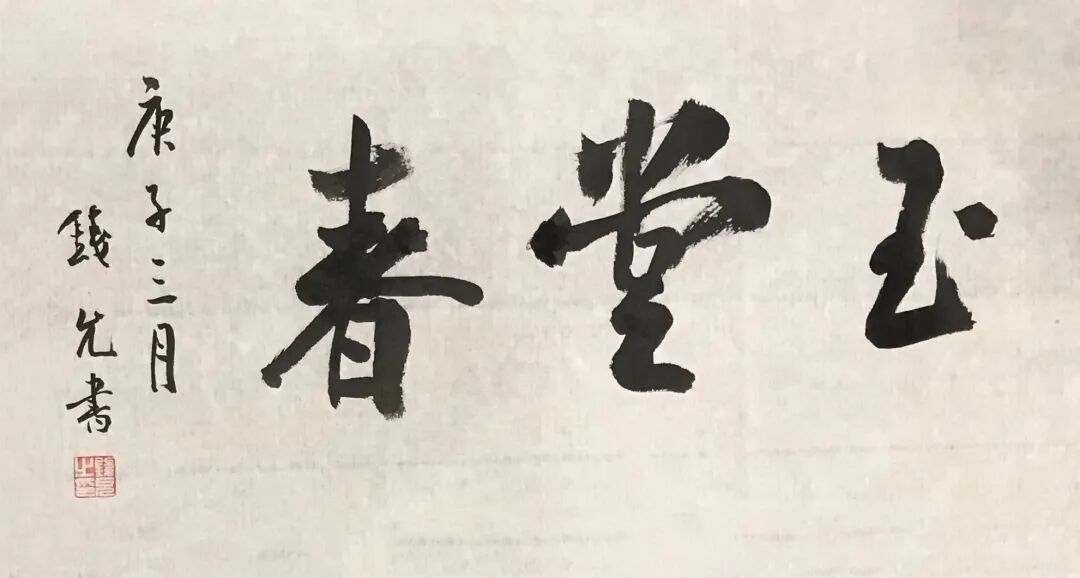 玉堂春
庚子三月
钱先书